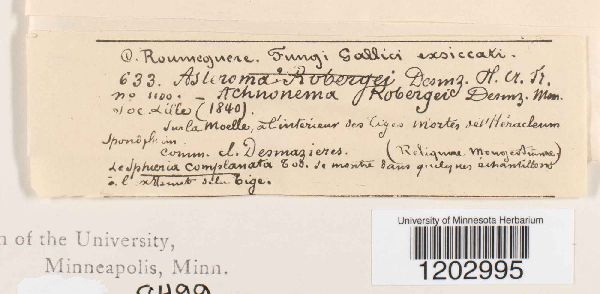 C. Roumeguere. Fungi Gallici exsiccati.
633. Asteroma Robergei Desmz. H. Cr. Fr.
no 1100. - Actinonema Robergei Desmz. Mem.
soc. Lille (1840).
Sur la Moelle, à l'interieur des tiges mortes de l'Héracleum
Spondylium.
comm. cl. Desmazieres. (Reliquiae Mougeotianae)
Le Sphæria complanata Tod. se montre dans quelques échantillons
à l'extremité de la tige.
of the University,
Minneapolis, Minn.
University of Minnesota Herbarium
1202995